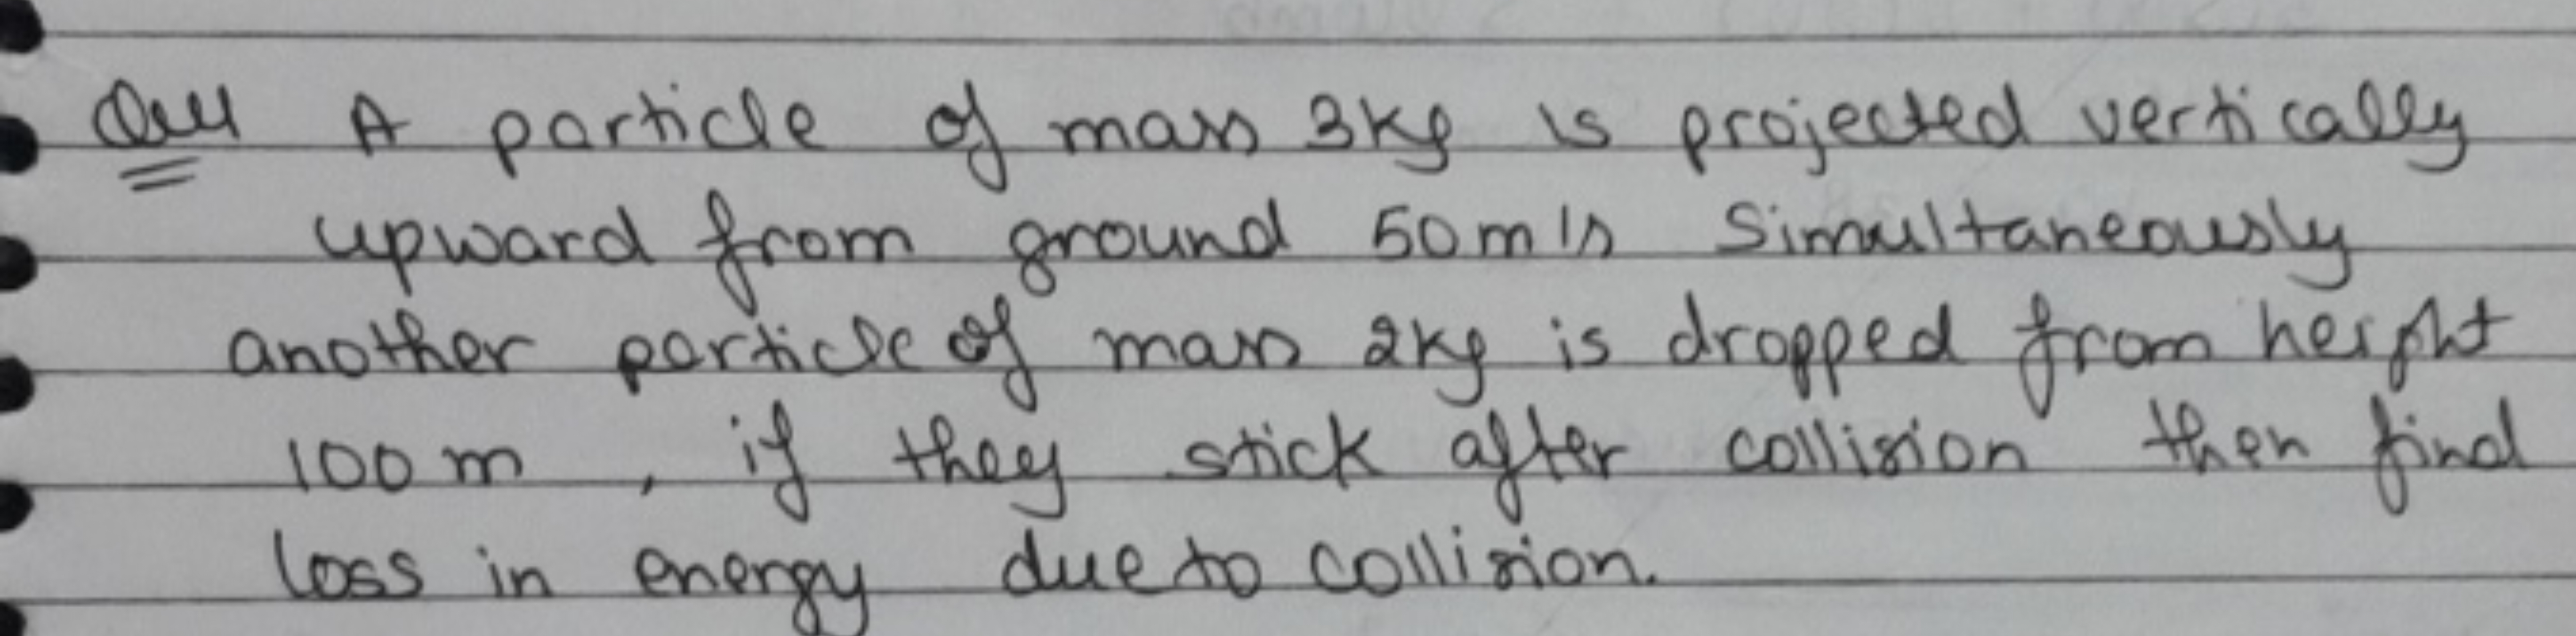 Que A particle of mass 3kg is projected vertically
upward from ground 50m/s Simultaneously
another particle of mass 2kg is dropped from height
100m, if they stick after collision then find
loss in energy due to collision.